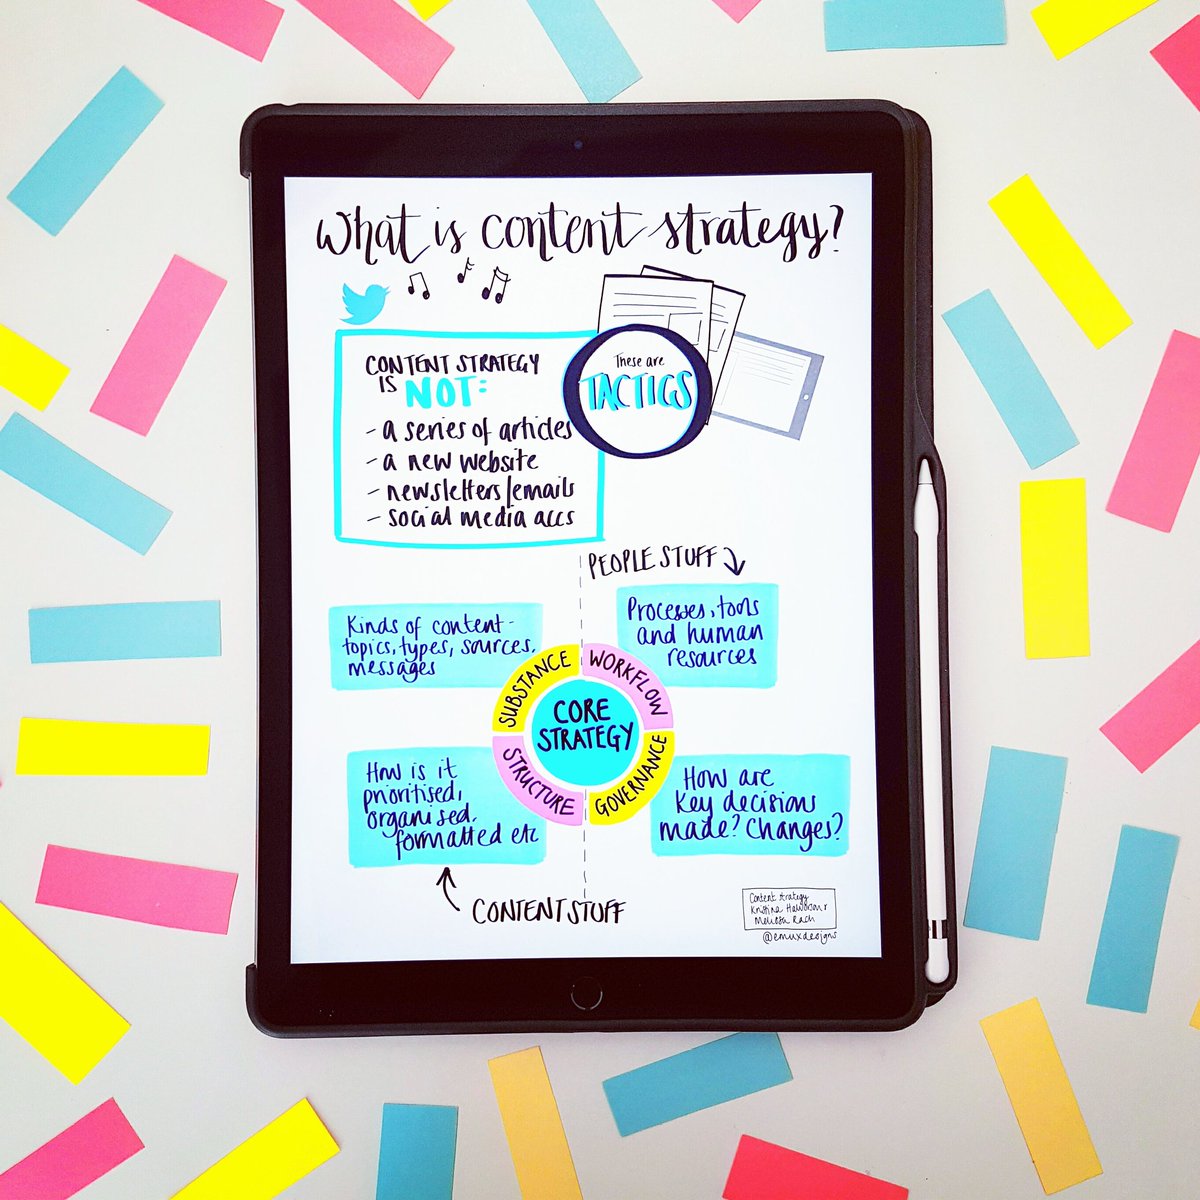 What is content strategy?
CONTENT STRATEGY
IS NOT:
- a series of articles
- a new website
- newsletters/emails
- social media accs
These are
TACTICS
PEOPLE STUFF
Kinds of content -
topics, types, sources,
messages
Processes, tools
and human
resources
SUBSTANCE
WORKFLOW
CORE
STRATEGY
STRUCTURE
GOVERNANCE
How is it
prioritised,
organised,
formatted etc
How are
key decisions
made? Changes?
CONTENT STUFF
Content strategy
Kristina Halvorson
Melissa Rach
@emuxdesigns